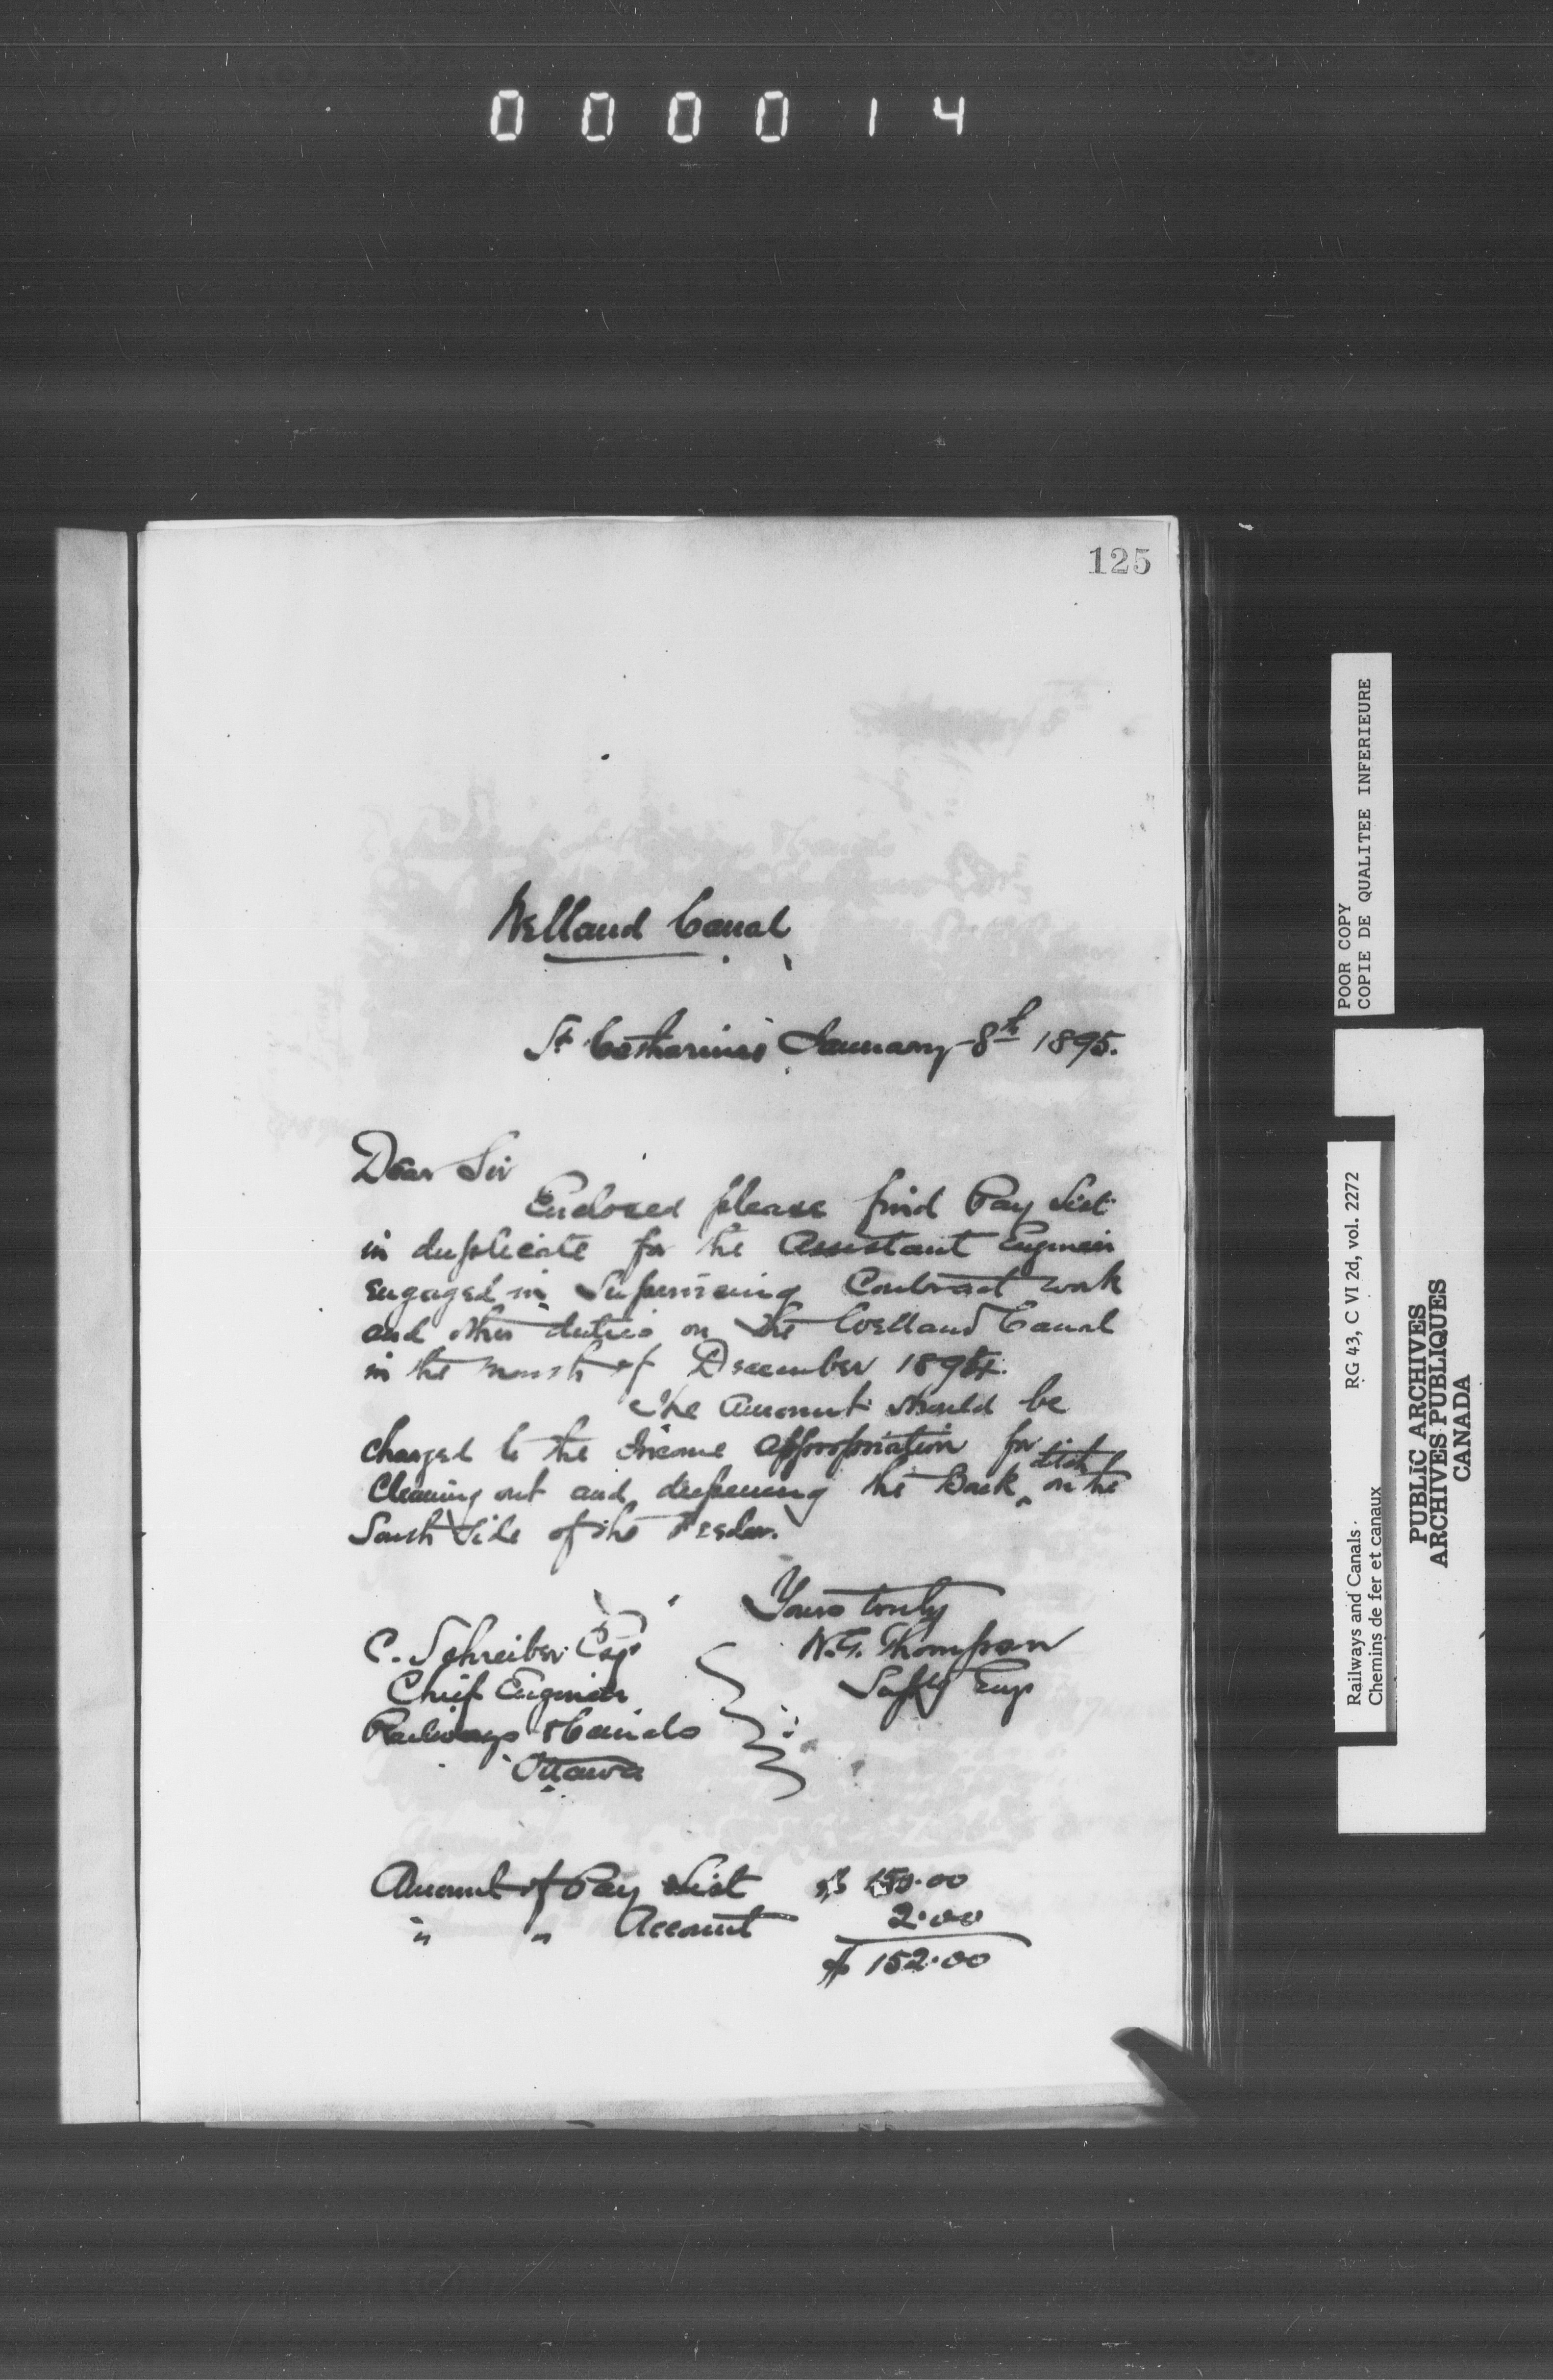 000014
125
Welland Canal
St Catharines January 8th 1895.
Dear Sir
Enclosed please find Pay List
in duplicate for the Assistant Engineer
engaged in Supervising Contract work
and other duties on the Welland Canal
in the month of December 1894.
The Amount should be
charged to the Income appropriation for
Cleaning out and deepening the Back ditch on the
South Side of the Feeder.
Yours truly
W.G. Thompson
Suptg Eng
C. Schreiber Esq
Chief Engineer
Railways & Canals
Ottawa
Amount of Pay List $ 150.00
" " Account 2.00
$ 152.00
POOR COPY
COPIE DE QUALITEE INFERIEURE
RG 43, C VI 2d, vol. 2272
Railways and Canals
Chemins de fer et canaux
PUBLIC ARCHIVES
ARCHIVES PUBLIQUES
CANADA